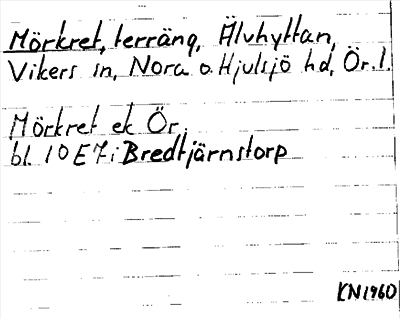 Mörkret, terräng, Älvhyttan,
Vikers sn, Nora o. Hjulsjö hd, Ör. l.
Mörkret ek Ör.
bl. 10 E7i Bredtjärnstorp
KN1960